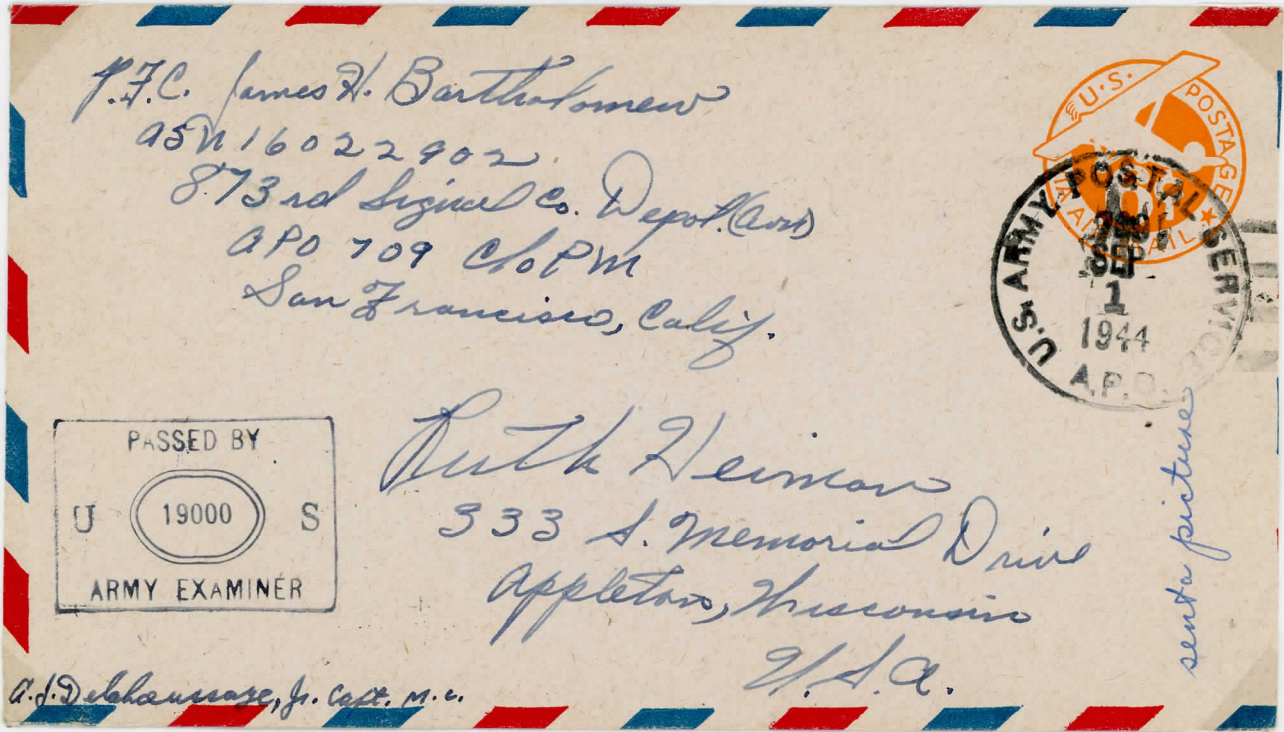 P.F.C. James H. Bartholomew
ASN 16022902
873rd Signal Co. Depot. (Avn)
APO 709 c/o PM
San Francisco, Calif.
U.S. POSTAGE
VIA AIR MAIL
U.S. ARMY POSTAL SERVICE
SEP
1
1944
A.P.O.
PASSED BY
U 19000 S
ARMY EXAMINER
Ruth Heiman
333 S. Memorial Drive
Appleton, Wisconsin
U.S.A.
sent a picture
A.J. Delahoussaye, Jr. Capt. M.C.